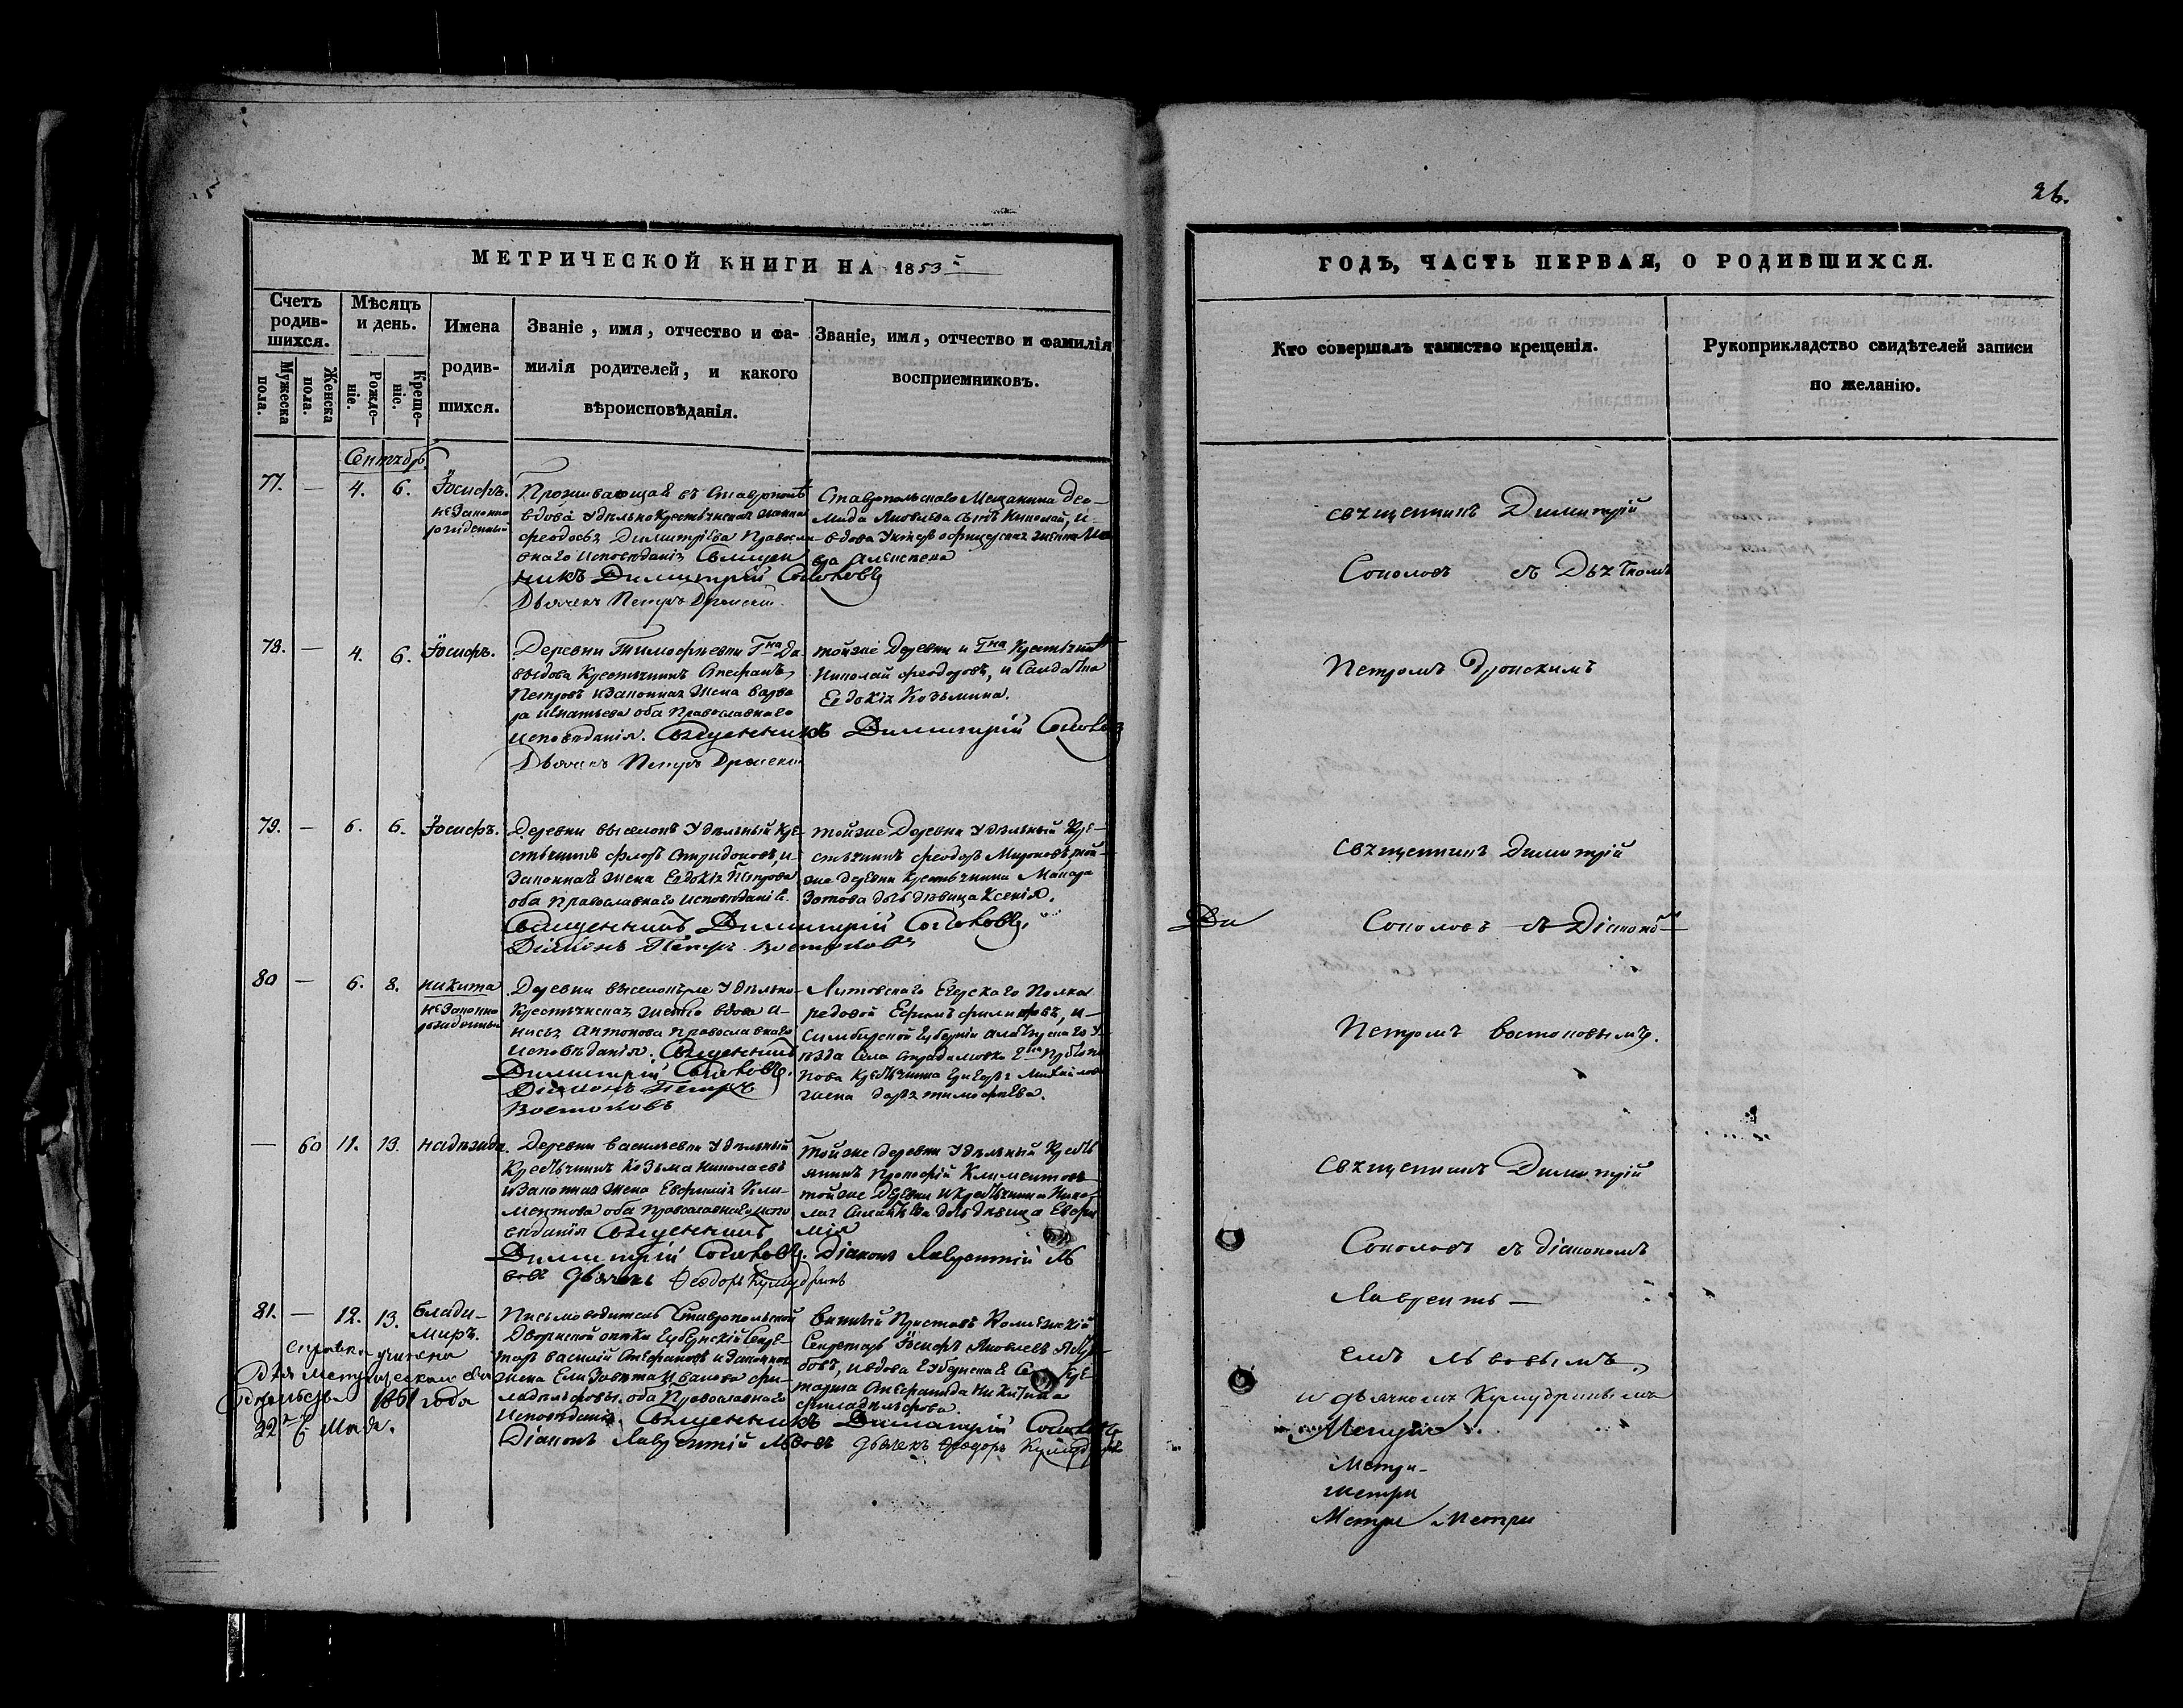 26.
МЕТРИЧЕСКОЙ КНИГИ НА 1853й
Счетъ родив-шихся.
Мужеска пола.
Женска пола.
Мѣсяцъ и день.
Рожде-ніе.
Креще-ніе.
Имена родив-шихся.
Званіе, имя, отчество и фа-
милія родителей, и какого
вѣроисповѣданія.
Званіе, имя, отчество и фамилія
восприемниковъ.
Сентябрь
77. — 4. 6. Іосифъ.
незаконно
рожденный
Проживающая въ Ставрополѣ
вдова Удѣльнокрестьянская женка
Феодосья Димитріева Правосла
внаго исповѣданія Священ
никъ Димитрій Соколовъ
Дьячекъ Петръ Дронскій
Ставропольскаго Мещанина Део-
мида Яковлева сынъ Николай, и-
вдова Унтеръ офицерская женка
Алексеева
78. — 4. 6. Іосифъ.
Деревни Тимофѣевки Гна Да
выдова Крестьянинъ Стефанъ
Петровъ и законная жена Варва
ра Игнатьева оба Православнаго
исповѣданія. Священникъ Димитрій Соколовъ
Дьячекъ Петръ Дронскій
тойже Деревни и Гна Крестьянинъ
Николай Феодоровъ, и Солдатка
Евдокія Козьмина.
79. — 6. 6. Іосифъ.
Деревни выселокъ Удѣльный Кре-
стьянинъ Флоръ Спиридоновъ, и-
законная жена Евдокія Петрова
оба Православнаго исповѣданія.
Священникъ Димитрій Соколовъ.
Діаконъ Петръ Востоковъ
тойже Деревни Удѣльный Кре-
стьянинъ Феодоръ Мироновъ, той-
же деревни крестьянина Макара
Зотова дочь дѣвица Ксенія.
80 — 6. 8. Никита
незаконно
рожденный
Деревни Удѣльно-
крестьянская женка вдова А-
нисья Антонова Православнаго
исповѣданія. Священникъ
Димитрій Соколовъ.
Діаконъ Петръ
Востоковъ
Литовскаго Егерскаго Полка
редовой Ефимъ Филиповъ, и-
Симбирской Губерніи У-
ѣзда Села
пова Крестьянина Михайлова
жена Дарья Тимофѣева.
— 60 11. 13. Надежда.
Деревни Васильевки Удѣльный
Крестьянинъ Козьма Николаевъ
и законная жена Евфимія Кли-
ментова оба православнаго испо
вѣданія Священникъ
Димитрій Соколовъ. Діаконъ Лаврентій Ль
вовъ Дьячекъ Феодоръ Кумудринъ
тойже деревни Удѣльный Кресть
янинъ Прокофій Климентовъ
тойже деревни и крестьянина Нико-
лая дочь дѣвица Евфи
мія
81. — 12. 13. Влади-
миръ.
Письмоводитель Ставропольской
Дворянской опеки Губернскій Секре-
тарь Василій Стефановъ и законная
жена Елизавета Иванова Фи-
ладельфовы. оба Православнаго
исповѣданія. Священникъ Димитрій Соколовъ
Діаконъ Лаврентій Львовъ Дьячекъ Феодоръ Кумудринъ
Приставъ Коллежскій
Секретарь Іосифъ Яковлевъ
бовъ, и вдова Губернскаго Секре-
таря Стефанида Никитина
Филадельфова.
справка учинена
для метрическаго сви
дѣтельства 1861 года
22го Мая.
ГОДЪ, ЧАСТЬ ПЕРВАЯ, О РОДИВШИХСЯ.
Кто совершалъ таинство крещенія.
Рукоприкладство свидѣтелей записи
по желанію.
священникъ Димитрій
Соколовъ съ Дьячкомъ
Петромъ Дронскимъ
священникъ Димитрій
Ди
Соколовъ съ Діакономъ
Петромъ Востоковымъ.
священникъ Димитрій
Соколовъ съ діакономъ
Лаврентъ —
емъ Львовымъ,
и дьячкомъ Кумудринымъ
Метри-
метри
Метри Метри